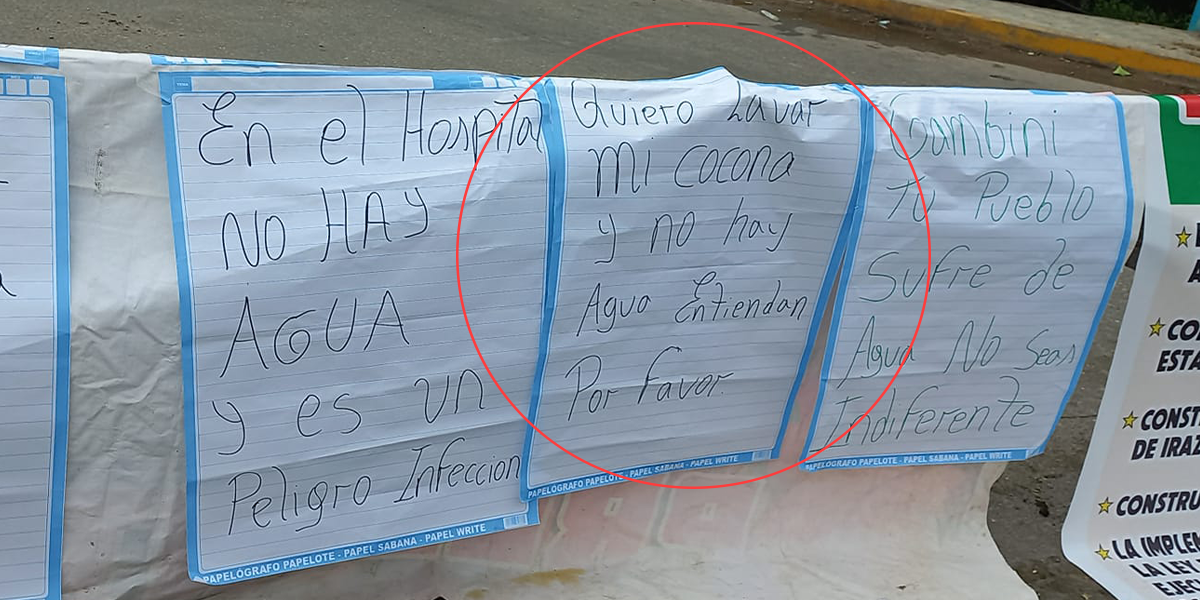 En el Hospital
NO HAY
AGUA
y es un
Peligro Infeccion
PAPELÓGRAFO PAPELOTE - PAPEL SABANA - PAPEL WRITE
Quiero Lavar
mi cocona
y no hay
Agua Entiendan
Por favor.
PAPELÓGRAFO PAPELOTE - PAPEL SABANA - PAPEL WRITE
Gambini
Tu Pueblo
Sufre de
Agua No Seas
Indiferente
PAPELÓGRAFO PAPELOTE - PAPEL SABANA - PAPEL WRITE
ESTA
CONST
DE IRAZ
CONSTRU
LA IMPLEM
LA LEY
EJEC